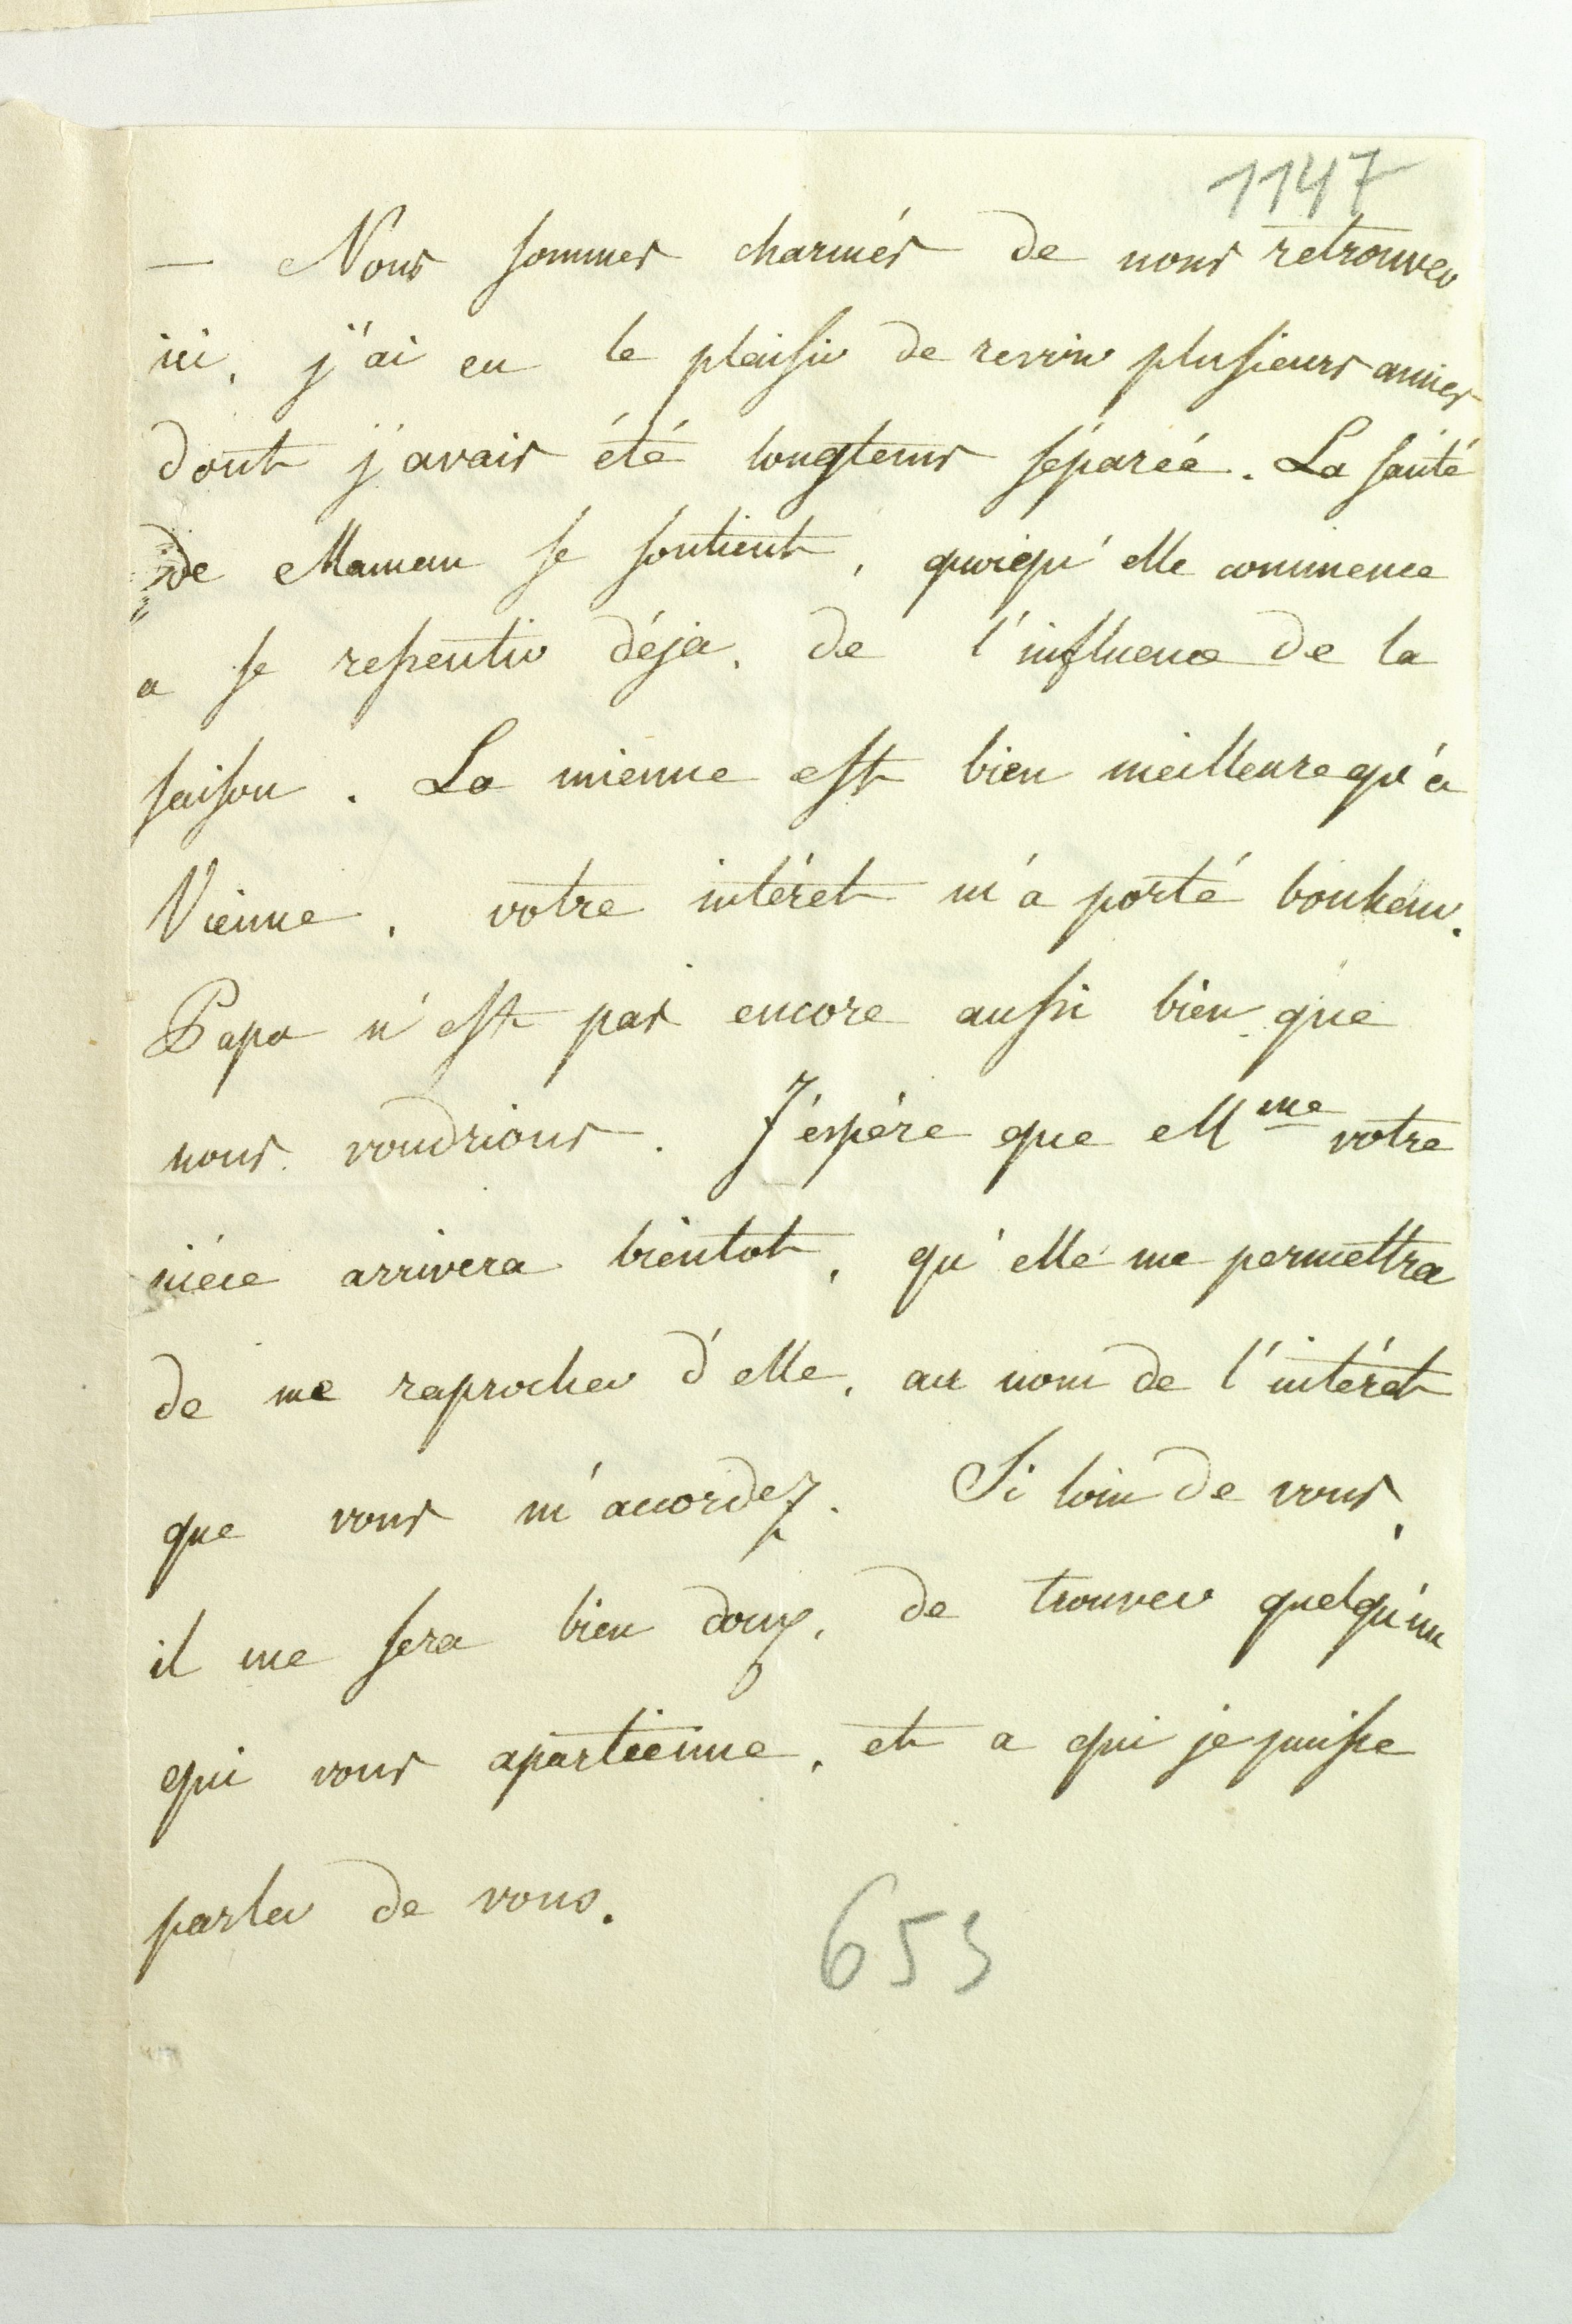 1147
— Nous sommes charmés de nous retrouver
ici, j'ai eu le plaisir de revoir plusieurs amies
dont j'avais été longtems séparée. La santé
de Maman se soutient, quoiqu'elle commence
a se ressentir déja, de l'influence de la
saison. La mienne est bien meilleure qu'a
Vienne, votre intéret m'a porté bonheur.
Papa n'est pas encore aussi bien que
nous voudrions. J'éspére que Mme votre
niéce arrivera bientot, qu'elle me permettra
de me raprocher d'elle, au nom de l'intéret
que vous m'accordez. Si loin de vous,
il me sera bien doux, de trouver quelqu'un
qui vous apartienne, et a qui je puisse
parler de vous.
653